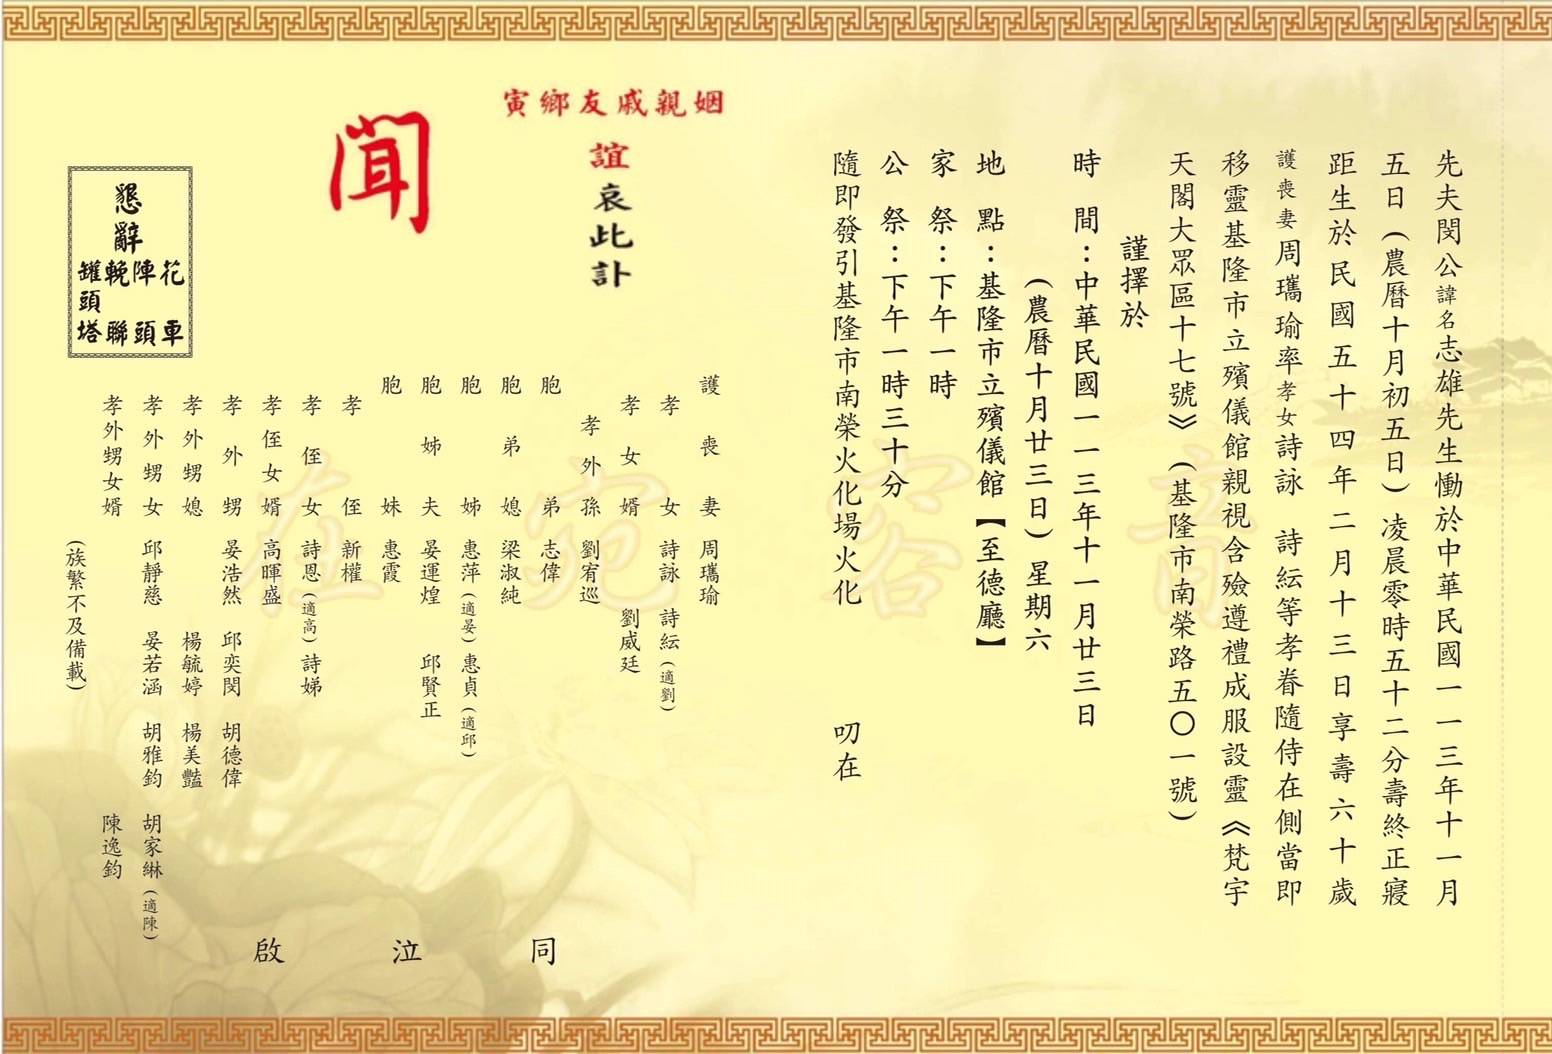 先夫閔公諱名志雄先生慟於中華民國一一三年十一月
五日(農曆十月初五日)凌晨零時五十二分壽終正寢
距生於民國五十四年二月十三日享壽六十歲
護喪妻周瓗瑜率孝女詩詠 詩紜等孝眷隨侍在側當即
移靈基隆市立殯儀館親視含殮遵禮成服設靈《梵宇
天閣大眾區十七號》(基隆市南榮路五〇一號)
謹擇於
時間:中華民國一一三年十一月廿三日
(農曆十月廿三日)星期六
地點:基隆市立殯儀館【至德廳】
家祭:下午一時
公祭:下午一時三十分
隨即發引基隆市南榮火化場火化 叨在
姻親戚友鄉寅
誼哀此訃
聞
護喪妻 周瓗瑜
孝女 詩詠 詩紜(適劉)
孝女婿 劉威廷
孝外孫 劉宥巡
胞弟 志偉
胞弟媳 梁淑純
胞姊 惠萍(適晏)惠貞(適邱)
胞姊夫 晏運煌 邱賢正
胞妹 惠霞
孝侄 新權
孝侄女 詩恩(適高)詩娣
孝侄女婿 高暉盛
孝外甥 晏浩然 邱奕閔 胡德偉
孝外甥媳 楊毓婷 楊美豔
孝外甥女 邱靜慈 晏若涵 胡雅鈞 胡家綝(適陳)
孝外甥女婿 陳逸鈞
(族繁不及備載)
同泣啟
懇辭
花車
陣頭
輓聯
罐頭塔
音容宛在